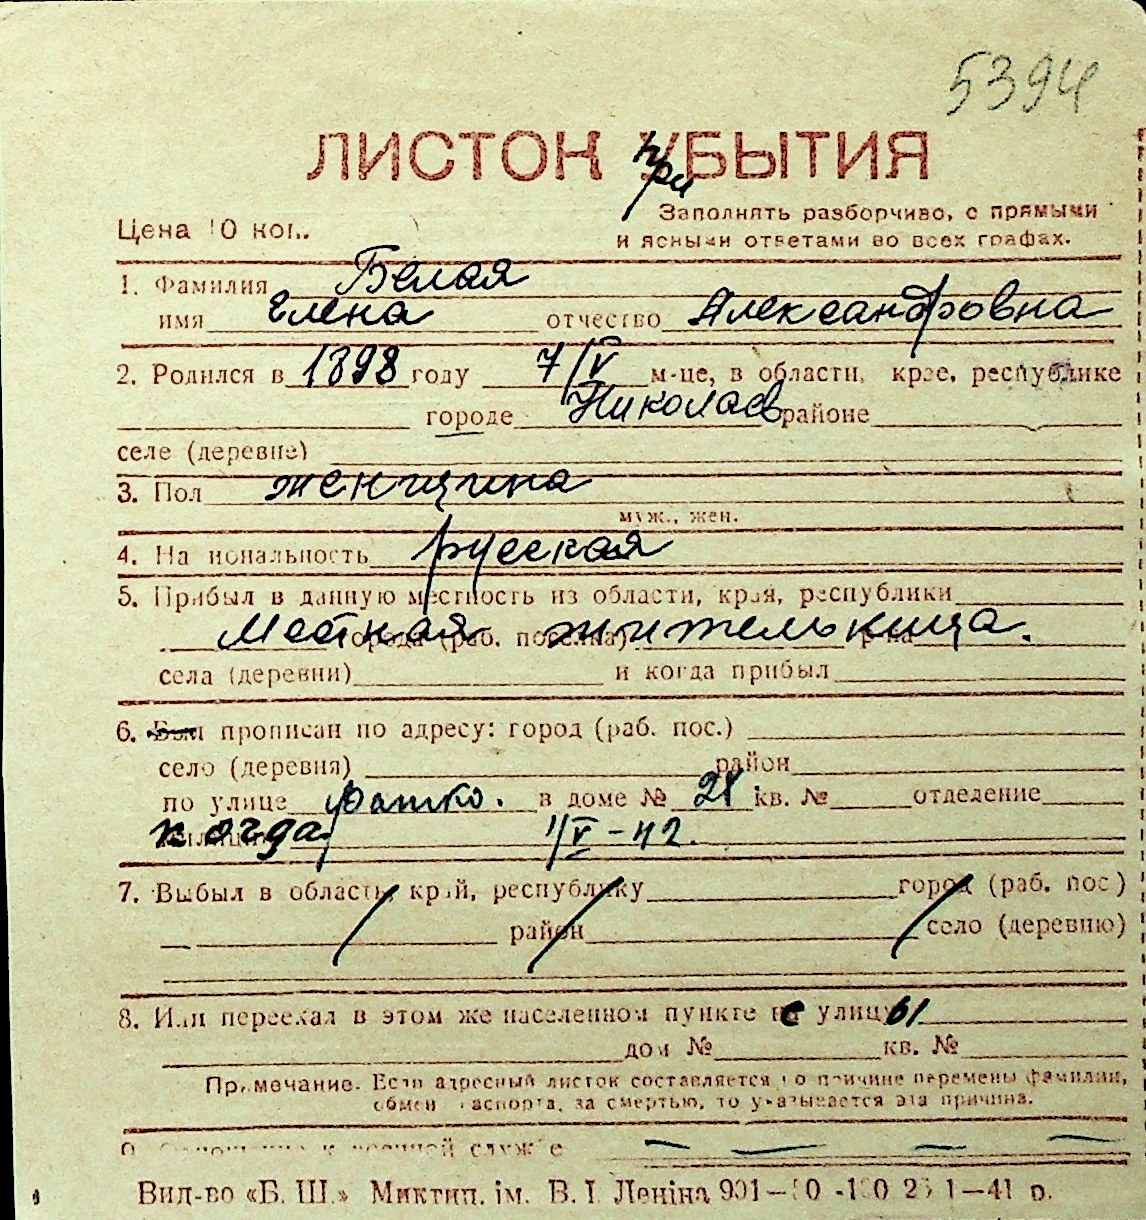 5394
ЛИСТОК УБЫТИЯ
при
Заполнять разборчиво, с прямыми
Цена 10 коп.
и ясными ответами во всех графах.
1. Фамилия Белая
имя Елена отчество Александровна
2. Родился в 1898 году 7/V м-це, в области, крае, республике
городе Николаев районе
селе (деревне)
3. Пол женщина
муж., жен.
4. Национальность русская
5. Прибыл в данную местность из области, края, республики
Местная жительница.
города (раб. поселка) р-на
села (деревни) и когда прибыл
6. Был прописан по адресу: город (раб. пос.)
село (деревня) район
по улице в доме № 28 кв. № отделение
когда 1/V-42.
7. Выбыл в область, край, республику город (раб. пос)
район село (деревню)
8. Или переехал в этом же населенном пункте с улицы
дом № кв. №
Примечание. Если адресный листок составляется по причине перемены фамилии,
обмен паспорта, за смертью, то указывается эта причина.
9. военной службе
Вид-во «Б. Ш.» Миктип. ім. В. І. Леніна 901 1—41 р.